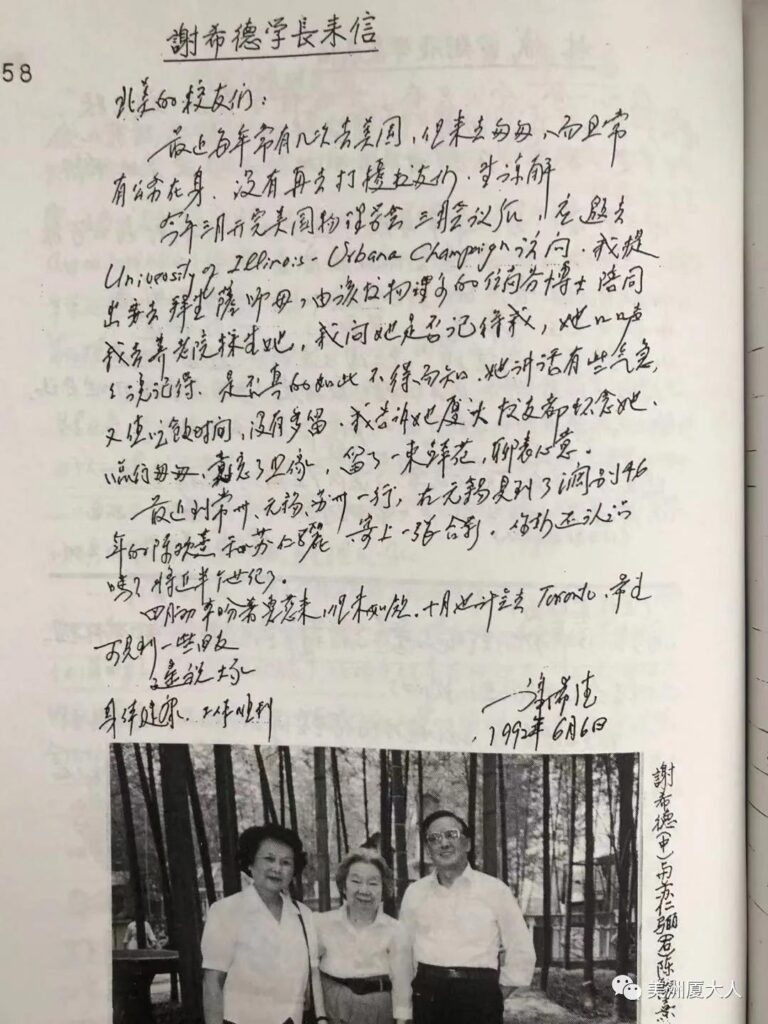 58
謝希德学長来信
北美的校友们：
最近每年常有几次去美国，但来去匆匆，而且常
有公务在身，没有再去打擾校友们，望谅解
今年三月开完美国物理学会三月会议后，应邀去
University of Illinois - Urbana Champaign 访问，我提
出要去拜望薩师母，由该校物理系的任尚芬博士陪同
我去养老院探望她，我问她是否记得我，她口口声
声说记得，是否真的如此不得而知。她讲话有些气急，
又值吃飯时间，没有多留。我告诉她厦大校友都怀念她。
临行匆匆，忘了照像，留了一束鲜花，聊表心意。
最近到常州、无锡、苏州一行，在无锡見到了阔别46
年的陈 和苏仁骊 寄上一张合影。你们还认识
吗？将近半个世纪了。
四月初 来，但未如愿。十月也计划去 Toronto，希望
可見到一些校友
遥祝大家
身体健康，工作胜利
谢希德
1992年6月6日
謝希德(中)与苏仁骊(左)陈
美洲厦大人